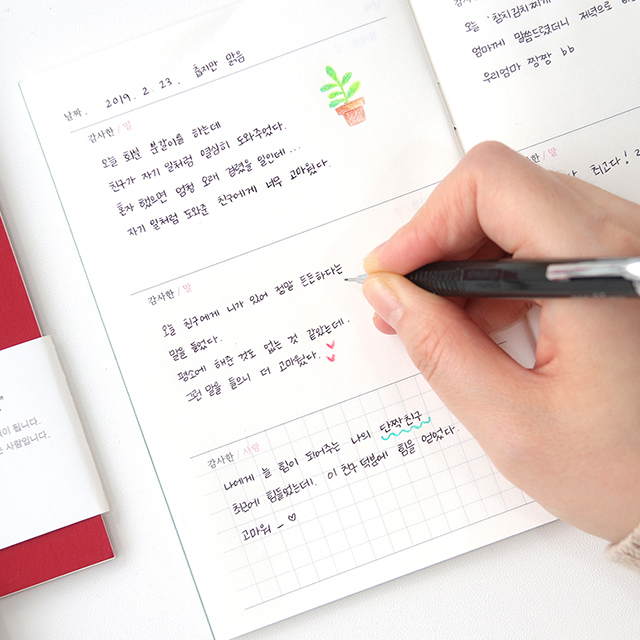 날짜. 2019. 2. 23. 춥지만 맑음
감사한 / 일
오늘 화분 분갈이를 하는데
친구가 자기 일처럼 열심히 도와주었다.
혼자 했으면 엄청 오래 걸렸을 일인데...
자기 일처럼 도와준 친구에게 너무 고마웠다.
감사한 / 말
오늘 친구에게 니가 있어 정말 든든하다는
말을 들었다.
평소에 해준 것도 없는 것 같았는데.
그런 말을 들으니 더 고마웠다.
감사한 / 사람
나에게 늘 힘이 되어주는 나의 단짝친구
최근에 힘들었는데, 이 친구 덕분에 힘을 얻었다.
고마워 ~ ♡
오늘 참치김치찌개
엄마께 말씀드렸더니 저녁으로
우리엄마 짱짱 bb
/ 말
최고다!
이 됩니다.
는 사람입니다.